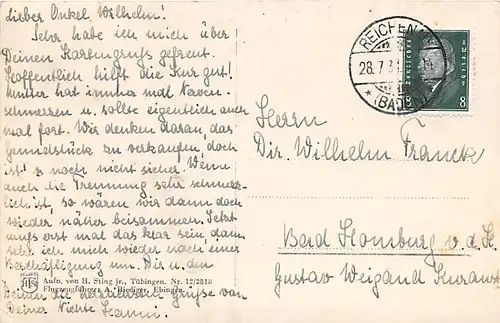 lieber Onkel Wilhelm!
Sehr habe ich mich über
Deinen Kartengruß gefreut.
Hoffentlich hilft die Kur gut!
hat immer mal
schmerzen u. sollte eigentlich auch
mal fort. Wir denken daran, das
Grundstück zu verkaufen, doch
ist's noch nicht sicher. Wenn
auch die Trennung sehr schmerz-
lich ist, so wären wir dann doch
wieder näher beisammen. Jetzt
muß erst mal das klar sein, dann
seh ich mich wieder nach einer
Beschäftigung um. Dir u. den
Beiden die herzlichsten Grüße von
Deiner Nichte
Aufn. von H. Sting jr., Tübingen. Nr. 12/2818
Flugzeugführer A. Biediger, Ebingen.
REICHENAU
28.7.31
(BADEN)
Deutsches Reich
8
Herrn
Dir. Wilhelm Franck
Bad Homburg v.d.H.
Gustav Weigand Kuranst.